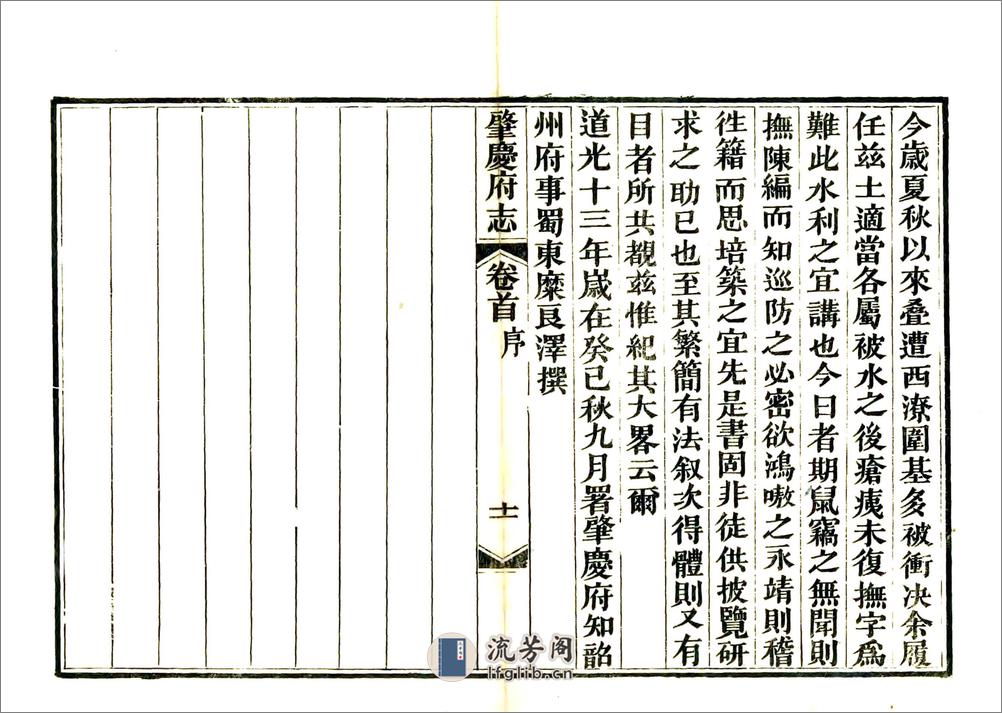 今歲夏秋以來叠遭西潦圍基多被衝决余履
任兹土適當各屬被水之後瘡痍未復撫字爲
難此水利之宜講也今日者期鼠竊之無聞則
撫陳編而知巡防之必密欲鴻嗷之永靖則稽
徃籍而思培築之宜先是書固非徒供披覽研
求之助已也至其繁簡有法叙次得體則又有
目者所共覩兹惟紀其大畧云爾
道光十三年嵗在癸巳秋九月署肇慶府知韶
州府事蜀東糜良澤撰
肇慶府志
卷首
序
十一
流芳阁
lfglib.cn